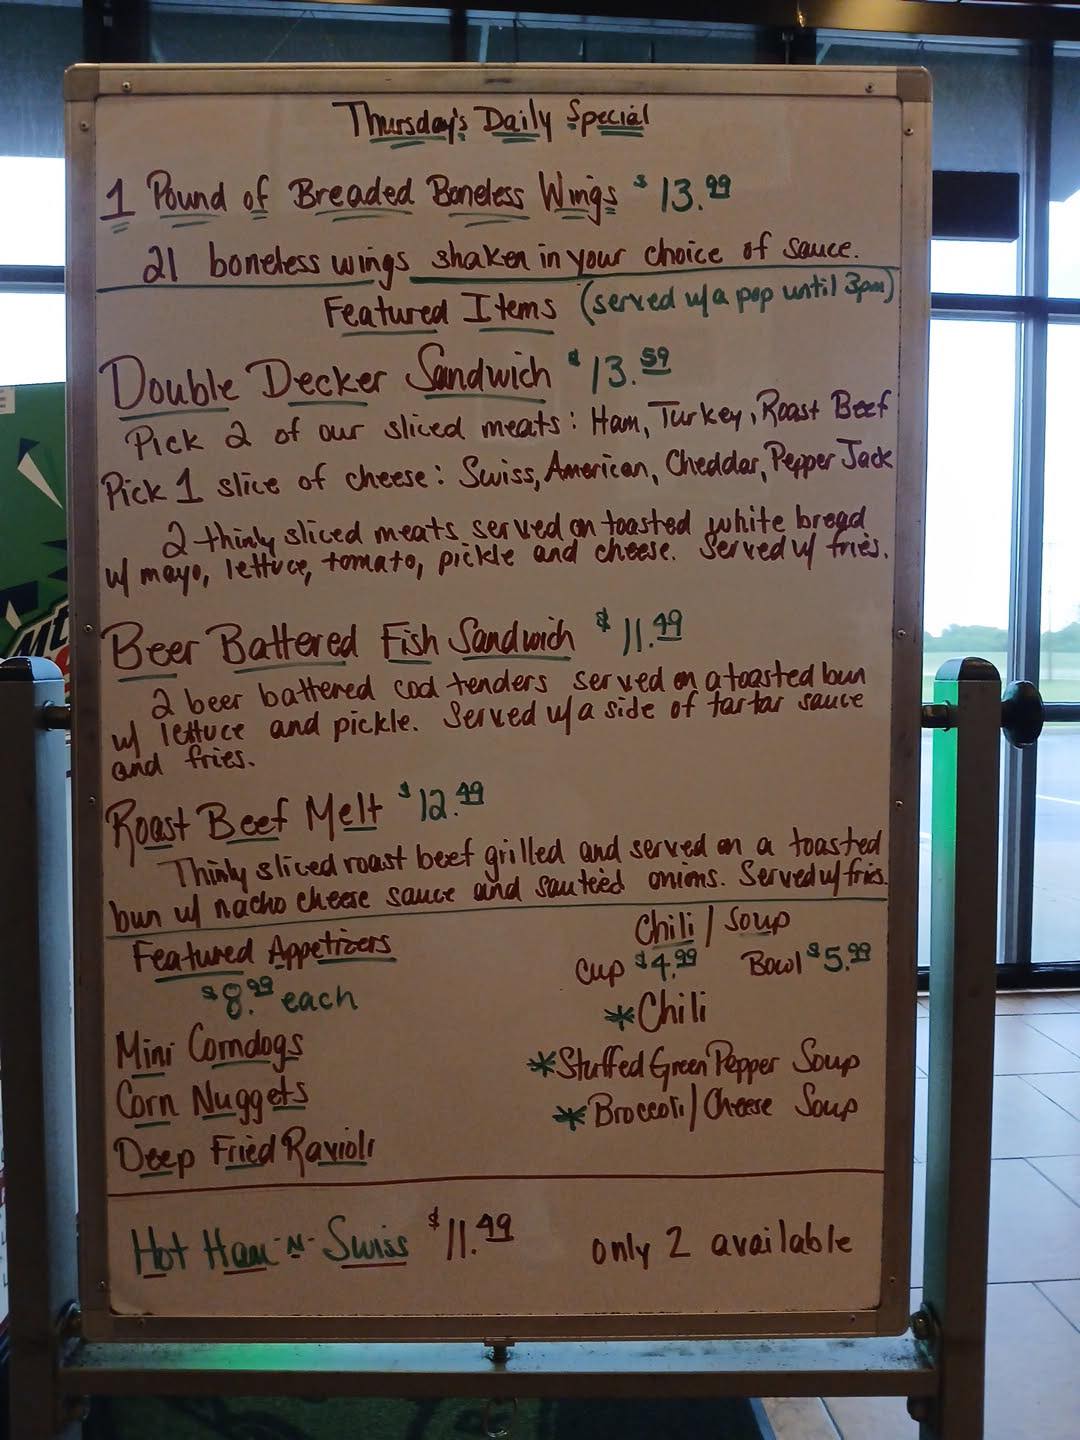 Thursday's Daily Special
1 Pound of Breaded Boneless Wings $13.99
21 boneless wings shaken in your choice of sauce.
Featured Items (served w/a pop until 3pm)
Double Decker Sandwich $13.59
Pick 2 of our sliced meats: Ham, Turkey, Roast Beef
Pick 1 slice of cheese: Swiss, American, Cheddar, Pepper Jack
2 thinly sliced meats served on toasted white bread
w/ mayo, lettuce, tomato, pickle and cheese. Served w/ fries.
Beer Battered Fish Sandwich $11.49
2 beer battered cod tenders served on a toasted bun
w/ lettuce and pickle. Served w/a side of tartar sauce
and fries.
Roast Beef Melt $12.49
Thinly sliced roast beef grilled and served on a toasted
bun w/ nacho cheese sauce and sauteéd onions. Served w/ fries.
Featured Appetizers
$8.99 each
Mini Corndogs
Corn Nuggets
Deep Fried Ravioli
Chili / Soup
Cup $4.99 Bowl $5.99
*Chili
*Stuffed Green Pepper Soup
*Broccoli/Cheese Soup
Hot Ham-N-Swiss $11.49 only 2 available